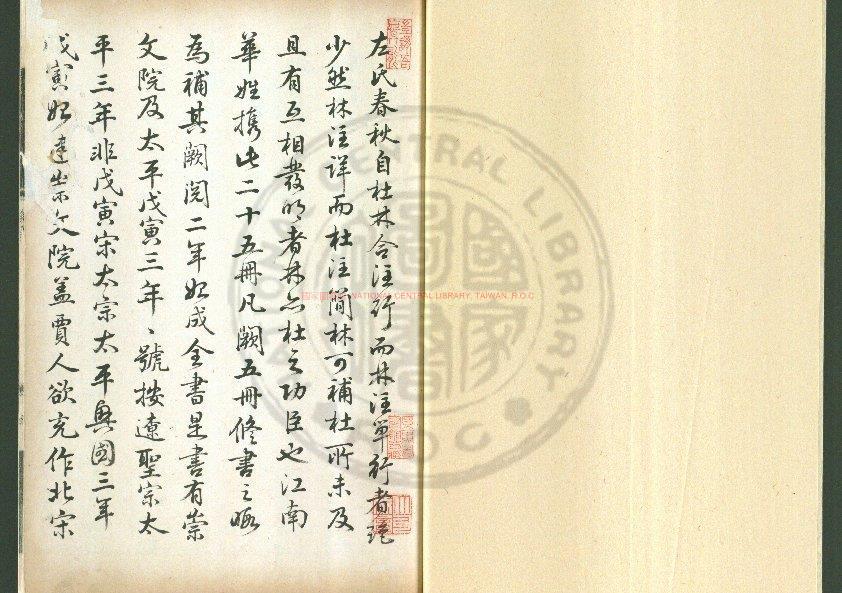 左氏春秋自杜林合注行而林注單行者
少然林注詳而杜注簡林可補杜所未及
且有互相發明者林亦杜之功臣也江南
華姓携此二十五冊凡闕五冊修書之暇
為補其闕閱二年始成全書是書有崇
文院及太平戊寅三年、號按遼聖宗太
平三年非戊寅宋太宗太平興國三年
戊寅始建崇文院蓋賈人欲充作北宋
NATIONAL CENTRAL LIBRARY, TAIWAN, R.O.C
CENTRAL LIBRARY